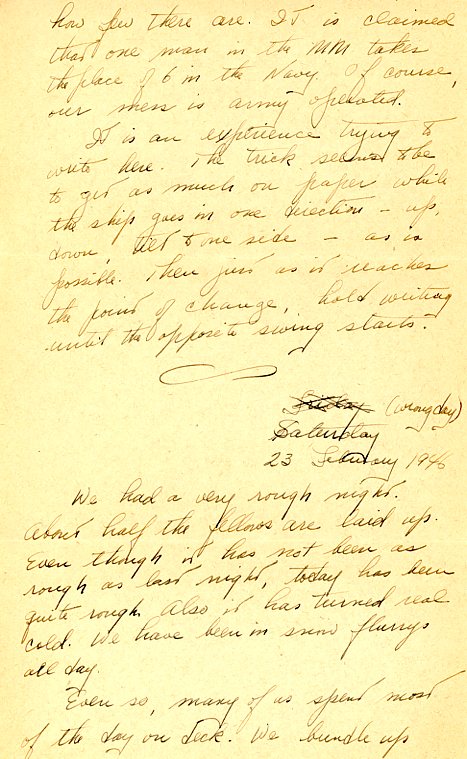 how few there are. It is claimed
that one man in the MM takes
the place of 6 in the Navy. Of course,
our mess is army operated.
It is an experience trying to
write here. The trick seems to be
to get as much on paper while
the ship goes in one direction - up,
down, tilt to one side - as is
possible. Then just as it reaches
the point of change, hold writing
until the opposite swing starts.
Friday (wrong day)
Saturday
23 February 1946
We had a very rough night.
About half the fellows are laid up.
Even though it has not been as
rough as last night, today has been
quite rough. Also it has turned real
cold. We have been in snow flurrys
all day.
Even so, many of us spend most
of the day on deck. We bundle up